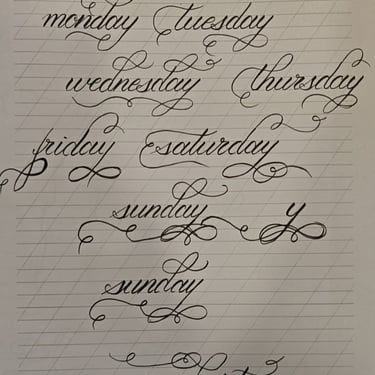 monday tuesday
wednesday thursday
friday saturday
sunday y
sunday